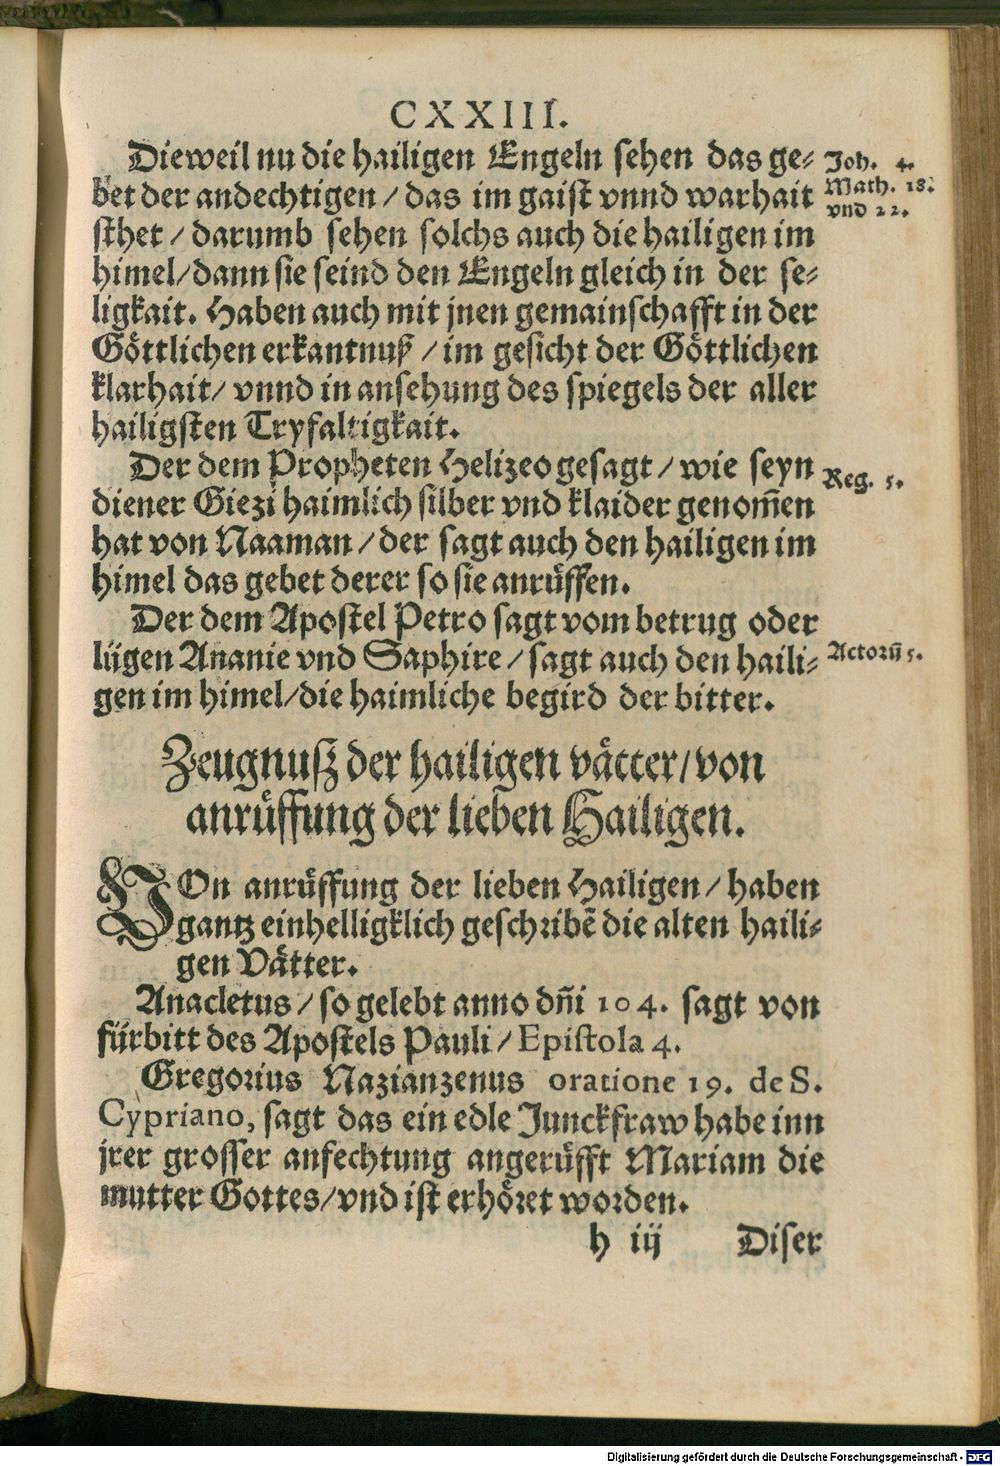 CXXIII.
Dieweil nu die hailigen Engeln sehen das ge-
bet der andechtigen / das im gaist vnnd warhait
sthet / darumb sehen solchs auch die hailigen im
himel/dann sie seind den Engeln gleich in der se-
ligkait. Haben auch mit jnen gemainschafft in der
Göttlichen erkantnuß / im gesicht der Göttlichen
klarhait/ vnnd in ansehung des spiegels der aller
hailigsten Tryfaltigkait.
Joh. 4.
Math. 18.
vnd 22.
Der dem Propheten Helizeo gesagt / wie seyn
diener Giezi haimlich silber vnd klaider genom̃en
hat von Naaman / der sagt auch den hailigen im
himel das gebet derer so sie anrüffen.
Reg. 5.
Der dem Apostel Petro sagt vom betrug oder
lügen Ananie vnd Saphire / sagt auch den haili-
gen im himel/die haimliche begird der bitter.
Actorũ 5.
Zeugnuß der hailigen vätter/von
anrüffung der lieben Hailigen.
VOn anrüffung der lieben Hailigen / haben
gantz einhelligklich geschribẽ die alten haili-
gen Vätter.
Anacletus / so gelebt anno dñi 104. sagt von
fürbitt des Apostels Pauli / Epistola 4.
Gregorius Nazianzenus oratione 19. de S.
Cypriano, sagt das ein edle Junckfraw habe inn
jrer grosser anfechtung angerüfft Mariam die
mutter Gottes/vnd ist erhöret worden.
h iij Diser
Digitalisierung gefördert durch die Deutsche Forschungsgemeinschaft - DFG